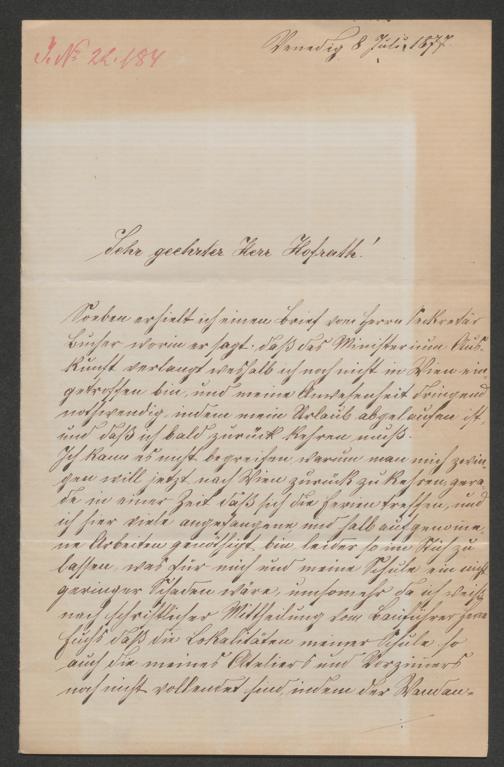 J. № 22.184
Venedig 8 Juli 1877
Sehr geehrter Herr Hofrath!
Soeben erhielt ich einen Brief vom Herrn Sekretär
Bucher worin er sagt, daß das Ministerium Aus-
kunft verlangt weshalb ich noch nicht in Wien ein
getroffen bin, und meine Anwesenheit dringend
nothwendig, indem mein Urlaub abgelaufen ist,
und daß ich bald zurück kehren muß.
Ich kann es nicht begreifen, warum man mich zwin-
gen will jetzt nach Wien zurück zu kehren gera-
de in einer Zeit daß sich die Ferien treffen, und
ich hier viele angefangene und halb aufgenomme-
ne Arbeiten genöthigt bin leider so im Stich zu
lassen, was für mich und meine Schule ein nicht
geringer Schaden wäre, umsomehr da ich weiß
nach schriftlicher Mittheilung vom Bauführer Herrn
Fuchs daß die Lokalitäten meiner Schule, so
auch die meines Ateliers und Vorzimers
noch nicht vollendet sind, indem der